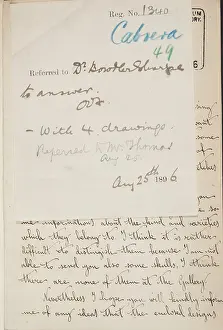 Reg. No. 1340
Cabrera
49
Referred to Dr. Bowdler Sharpe
to answer.
- With 4 drawings.
Referred to Mr Thomas
Aug 25.
Aug 25th 1896
me information about the kind and varieties
which they belong to I think it is rather
difficult to distinguish them because I am not
able to send you also some skulls, I think
there are none of them at the gallery.
Nevertheless I hope you will kindly inform
me of any ideas that the enclosed designs